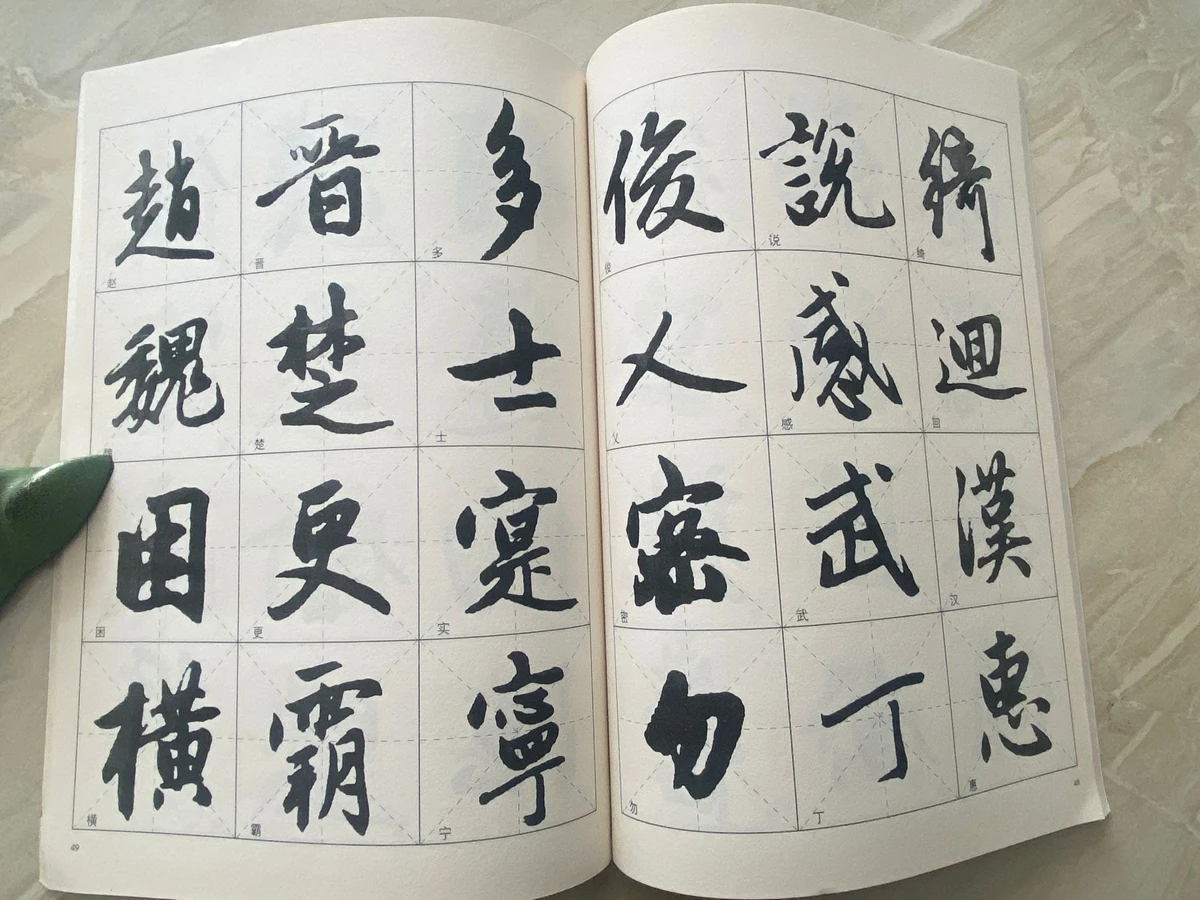 綺迴漢惠
绮回汉惠
48
説感武丁
说感武丁
俊乂密勿
俊乂密勿
多士寔寧
多士实宁
晋楚更霸
晋楚更霸
趙魏困横
赵魏困横
49